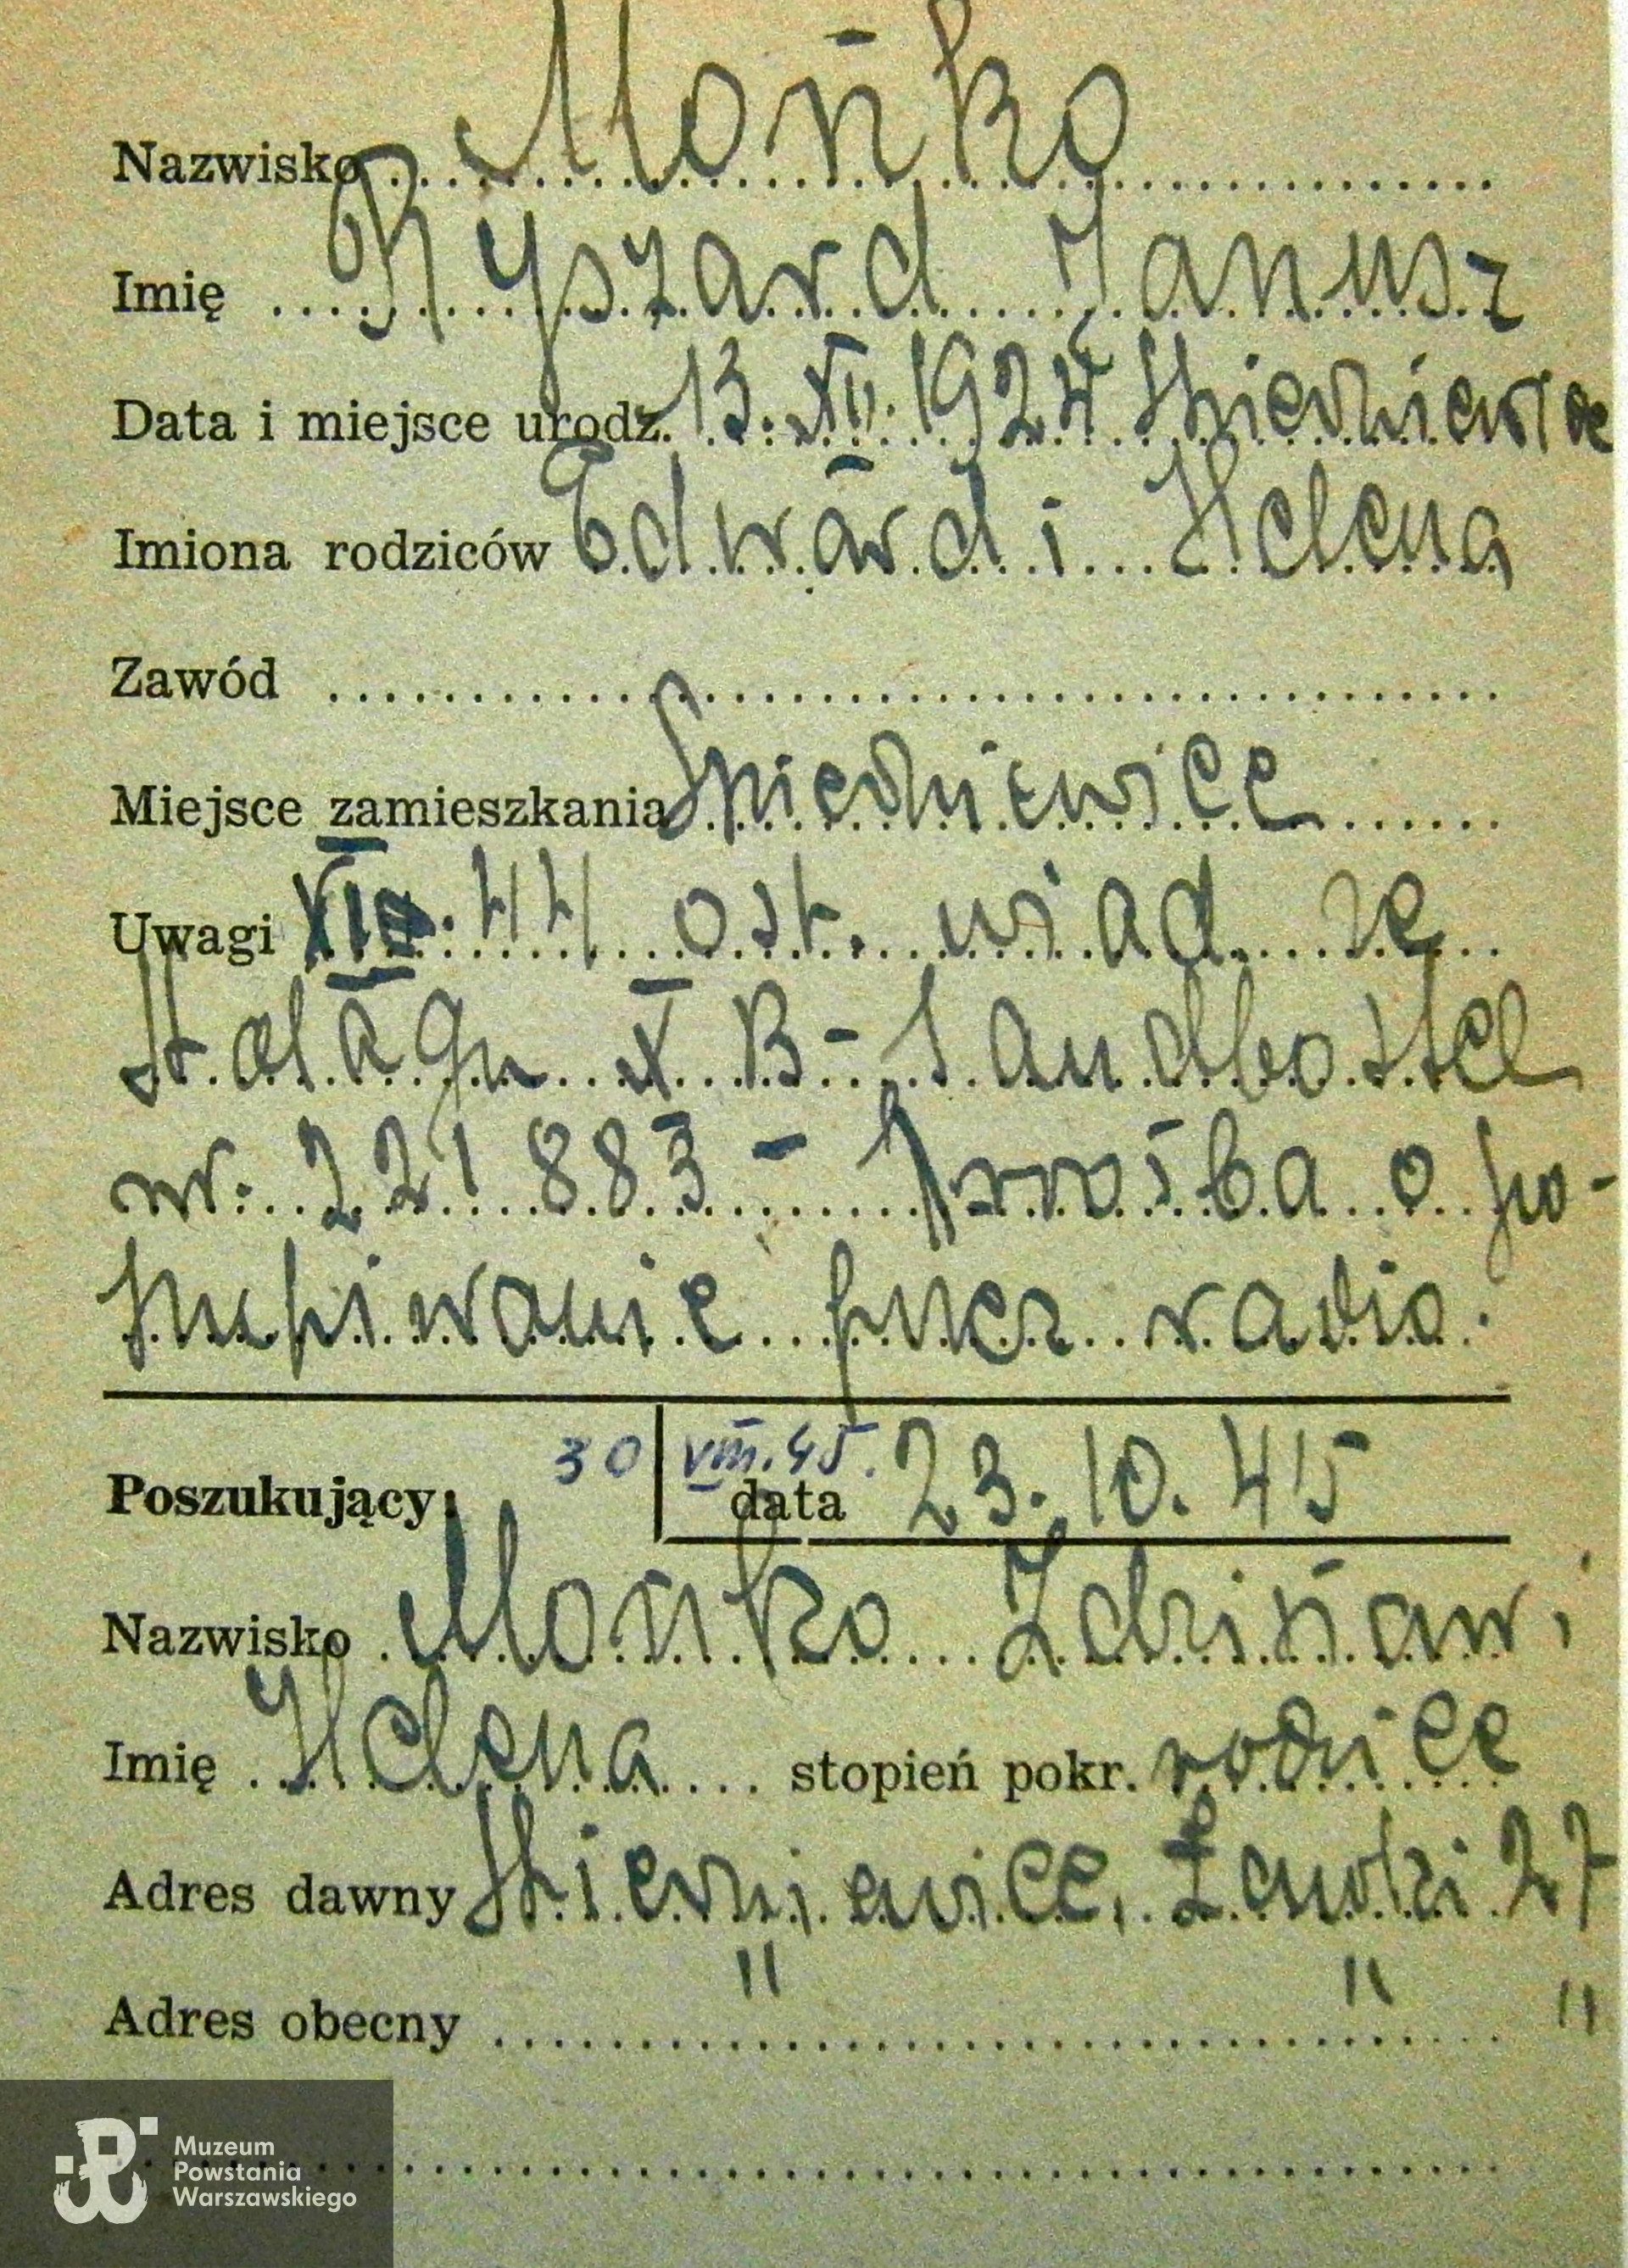 Nazwisko Mońko
Imię Ryszard Janusz
Data i miejsce urodz. 13.XII.1924 Skierniewice
Imiona rodziców Edward i Helena
Zawód
Miejsce zamieszkania Skierniewice
Uwagi 44 ost. wiad. ze
Stalagu X B - Sandbostel
nr. 221883 - Prośba o po-
szukiwanie przez radio.
30 VIII.45.
Poszukujący: data 23.10.45
Nazwisko Mońko Zdzisław i
Imię Helena stopień pokr. rodzice
Adres dawny Skierniewice, 27
" " "
Adres obecny
Muzeum
Powstania
Warszawskiego